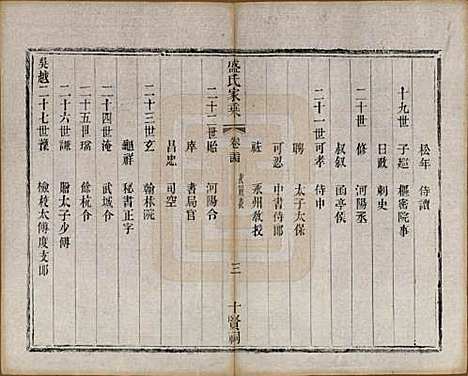 松年　侍讀
十九世　子巡　樞密院事
日政　刺史
二十世　修　河陽丞
叔叙　函亭侯
二十一世　可孝　侍中
聘　太子太保
可忍　中書侍郎
祉　永州教授
盛氏家乘　卷二十四　三　十賢祠
二十二世　貽　河陽令
庠　書局官
昌忠　司空
二十三世　玄　翰林院
龜祥　秘書正字
二十四世　淹　武城令
二十五世　璫　餘杭令
二十六世　豫　贈太子少傅
吳越
二十七世　豫　檢校太傅度支郎